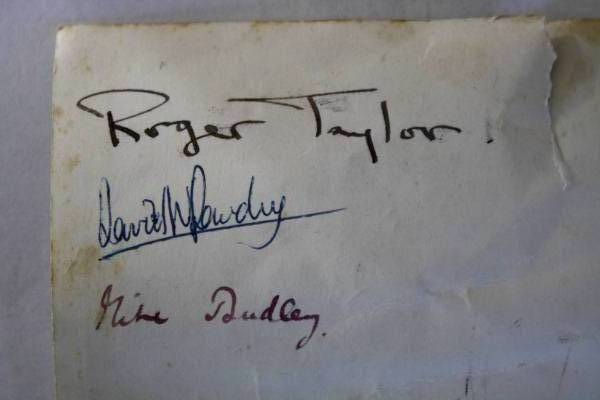 Roger Taylor.
David
Mike Dudley.